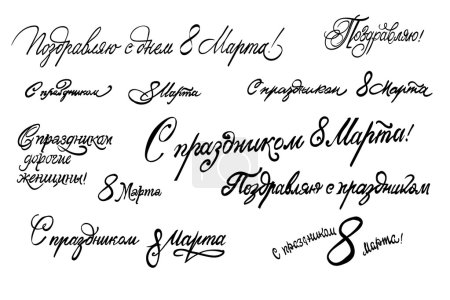 Поздравляю с днем 8 Марта!
Поздравляю!
С праздником
8 Марта
С праздником 8 Марта
С праздником
дорогие
женщины!
С праздником 8 Марта!
8 Марта
Поздравляю с праздником
С праздником 8 Марта
с праздником 8 марта!